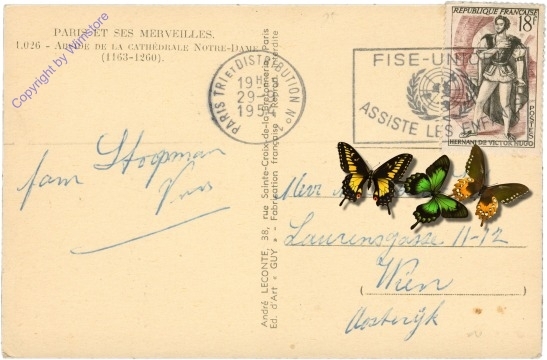 PARIS ET SES MERVEILLES.
1.026 - ABSIDE DE LA CATHÉDRALE NOTRE-DAME
(1163-1260).
Copyright by Wimstore
PARIS TRI et DISTRIBUTION N°1
19H
29-
195
FISE-UNIC
ASSISTE LES ENF
REPUBLIQUE FRANÇAISE
18F
POSTES
HERNANI DE VICTOR HUGO
fam Stoopman
André LECONTE, 38, rue Sainte-Croix-de-la-Bretonnerie, Paris
Ed. d'Art « GUY » - Fabrication française - Reprod. interdite
Laurensgasse 11-12
Wien
Oosterijk